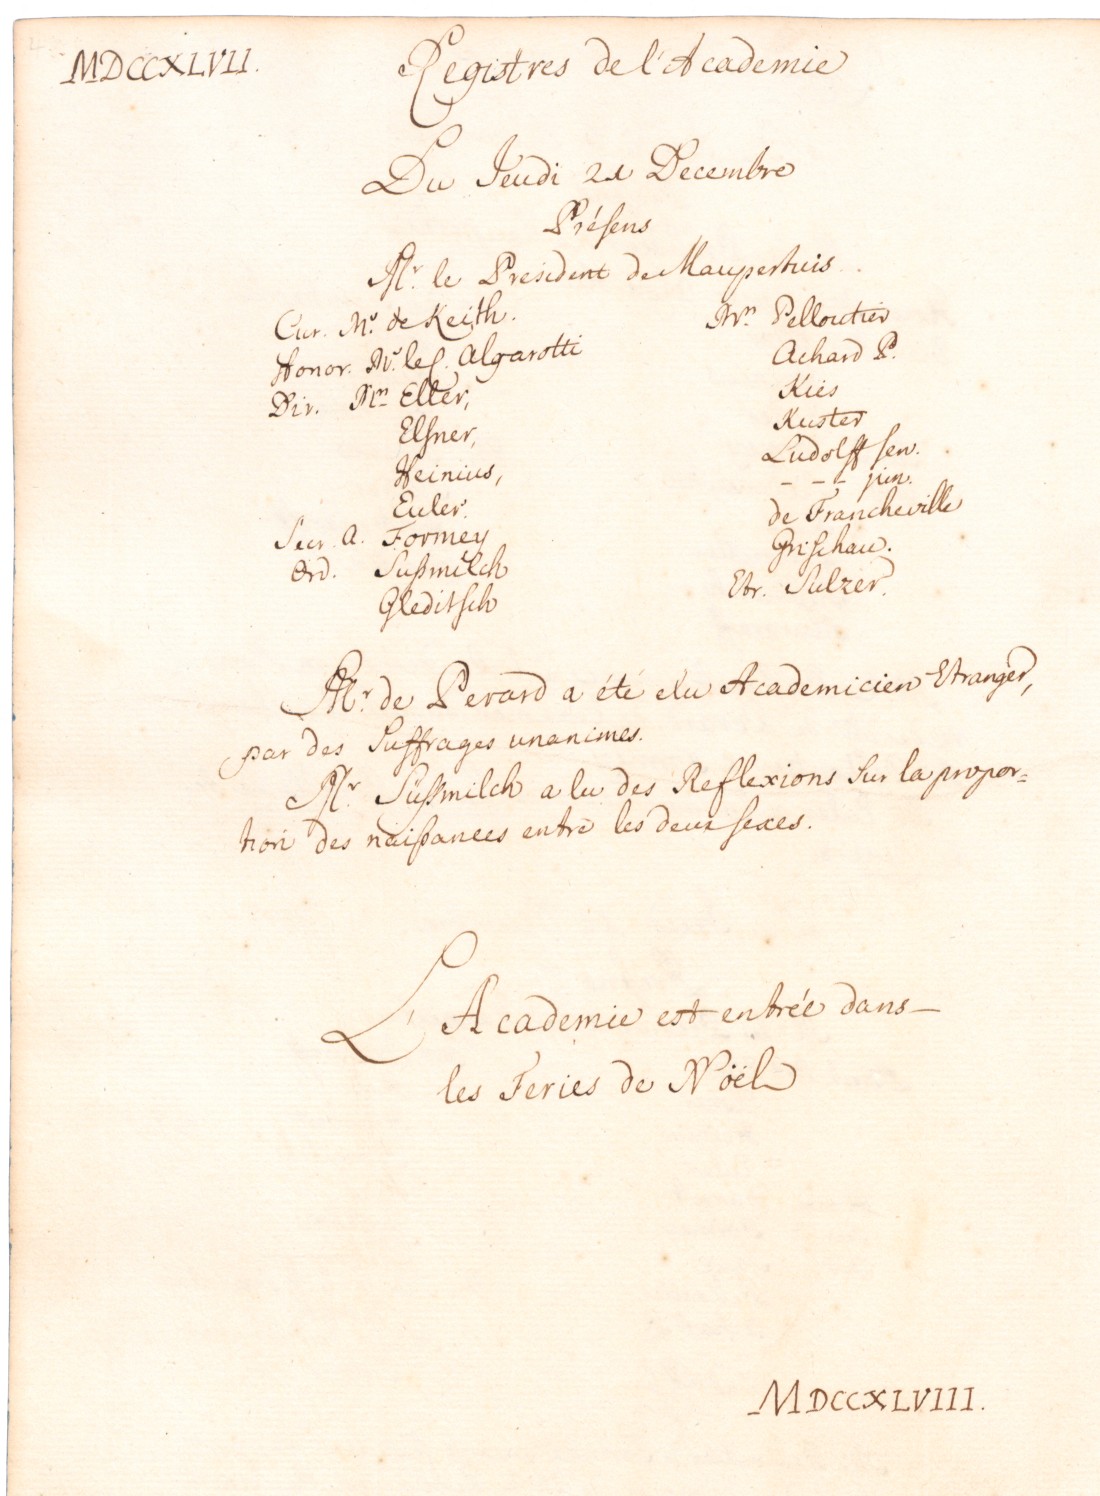 MDCCXLVII.
Registres de l'Academie
Du Jeudi 21 Decembre
Présens
Mr. le President de Maupertuis.
Cur. Mr. de Keith.
Honor. Mr. le C. Algarotti
Dir. Mrs Eller,
Elsner,
Heinius,
Euler.
Secr. A. Formey
Ord. Sußmilch
Gleditsch
Mrs Pelloutier
Achard P.
Kies
Kuster
Ludolff sen.
- - - jun.
de Francheville
Grischau.
Etr. Sulzer.
Mr. de Perard a été elu Academicien Etranger,
par des Suffrages unanimes.
Mr. Sußmilch a lu des Reflexions sur la propor=
tion des naißances entre les deux sexes.
L'Academie est entrée dans
les Feries de Nöël
MDCCXLVIII.